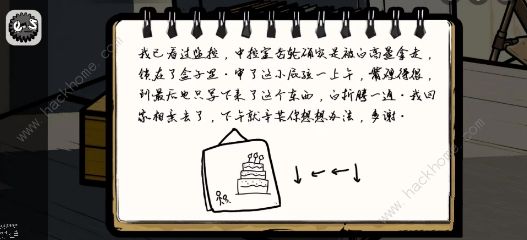 我已看过监控，中控室齿轮确实是被白高星拿走，
锁在了盒子里。审了这小屁孩一上午，嘴硬得很，
到最后也只写下来了这个东西，白折腾一通。我回
家相亲去了，下午就辛苦你想想办法，多谢。
www.hackhome.com
www.hackhome.com